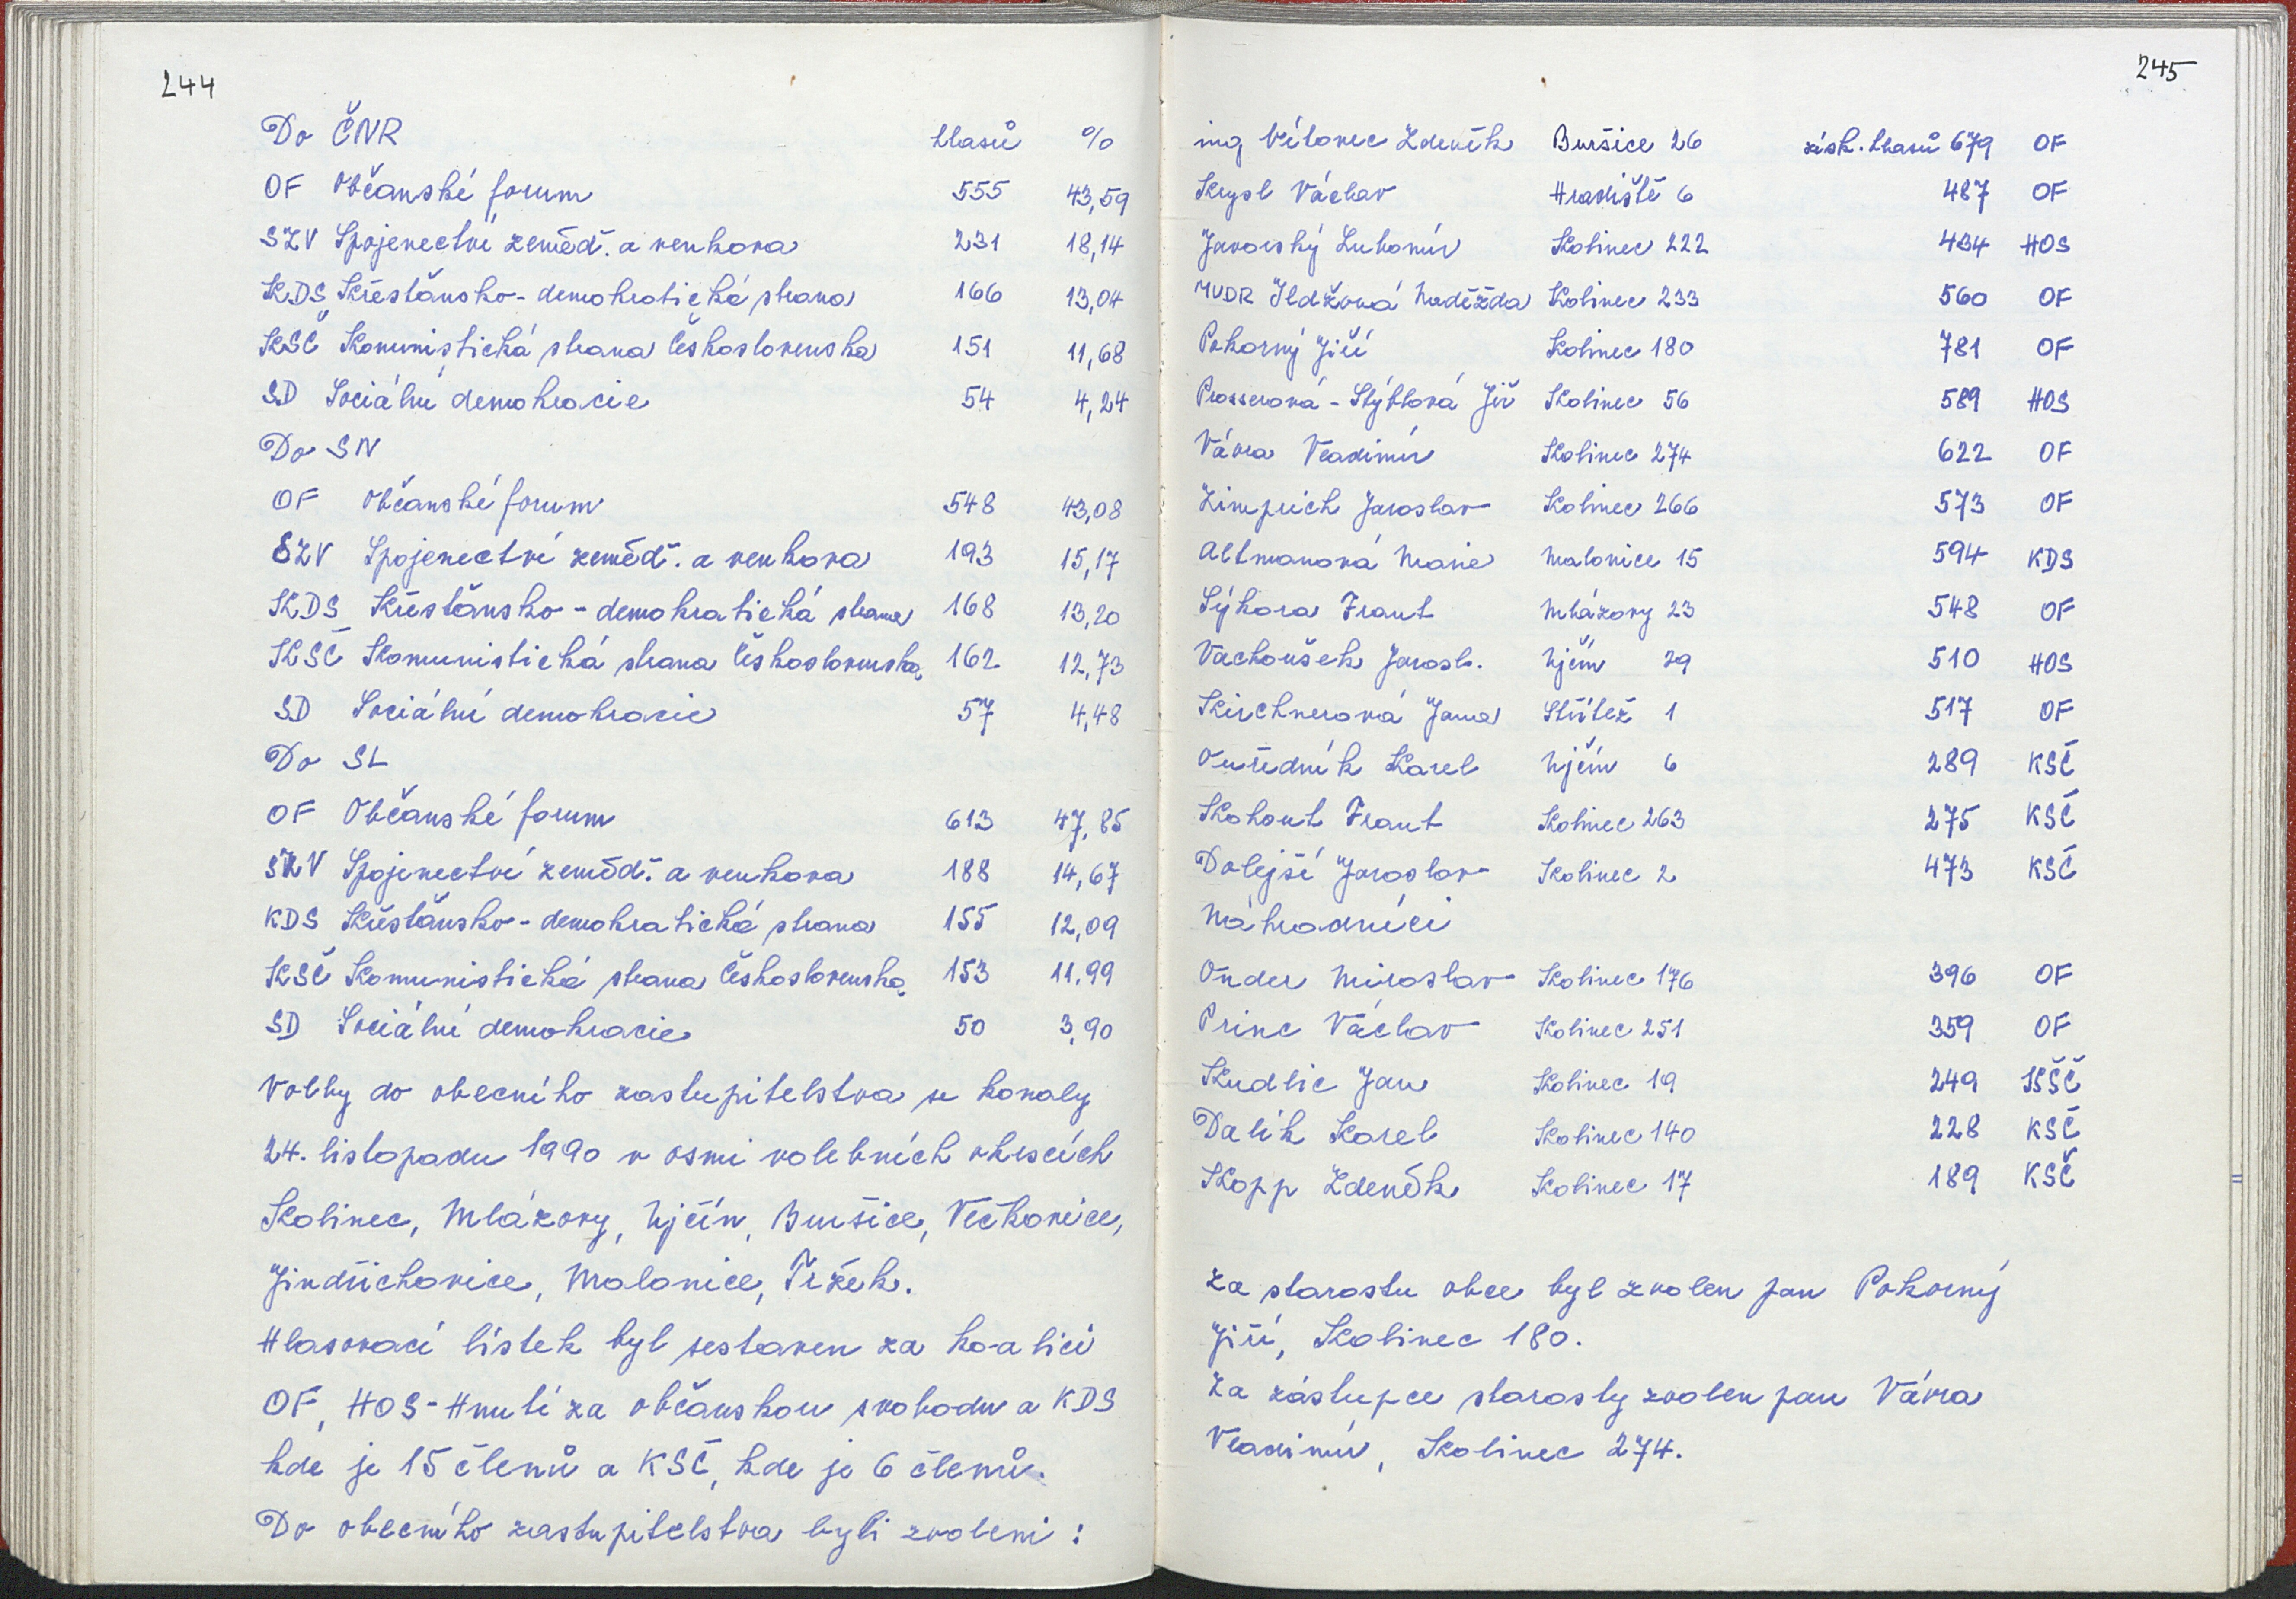 244
Do ČNR hlasů %
OF Občanské forum 555 43,59
SZV Spojenectví zeměď. a venkova 231 18,14
KDS Křesťansko-demokratická strana 166 13,04
KSČ Komunistická strana Československa 151 11,68
SD Sociální demokracie 54 4,24
Do SN
OF Občanské forum 548 43,08
SZV Spojenectví zeměď. a venkova 193 15,17
KDS Křesťansko-demokratická strana 168 13,20
KSČ Komunistická strana Československa 162 12,73
SD Sociální demokracie 57 4,48
Do SL
OF Občanské forum 613 47,85
SZV Spojenectví zeměď. a venkova 188 14,67
KDS Křesťansko-demokratická strana 155 12,09
KSČ Komunistická strana Československa 153 11,99
SD Sociální demokracie 50 3,90
Volby do obecního zastupitelstva se konaly
24. listopadu 1990 v osmi volebních okrscích
Kolinec, Mlázovy, Ujčín, Buršice, Vlčkovice,
Jindřichovice, Malonice, Tržek.
Hlasovací lístek byl sestaven za ko-alici
OF, HOS-Hnutí za občanskou svobodu a KDS
kde je 15 členů a KSČ, kde je 6 členů.
Do obecního zastupitelstva byli zvoleni:
245
ing Zdeněk Buršice 26 získ. hlasů 679 OF
Krysl Václav Hradiště 6 487 OF
Javorský Lubomír Kolinec 222 434 HOS
MUDR Naděžda Kolinec 233 560 OF
Pokorný Jiří Kolinec 180 781 OF
Prosserová-Stýblová Jiř Kolinec 56 589 HOS
Vávra Vladimír Kolinec 274 622 OF
Zimprich Jaroslav Kolinec 266 573 OF
Altmanová Marie Malonice 15 594 KDS
Sýkora Frant Mlázovy 23 548 OF
Vachoušek Jarosl. Ujčín 29 510 HOS
Kirchnerová Jana Střítež 1 517 OF
Ouředník Karel Ujčín 6 289 KSČ
Kohout Frant Kolinec 263 275 KSČ
Dolejší Jaroslav Kolinec 2 473 KSČ
Náhradníci
Onder Miroslav Kolinec 176 396 OF
Princ Václav Kolinec 251 359 OF
Kudlic Jan Kolinec 19 249 KSČ
Dalík Karel Kolinec 140 228 KSČ
Kopp Zdeněk Kolinec 17 189 KSČ
Za starostu obce byl zvolen pan Pokorný
Jiří, Kolinec 180.
Za zástupce starosty zvolen pan Vávra
Vladimír, Kolinec 274.